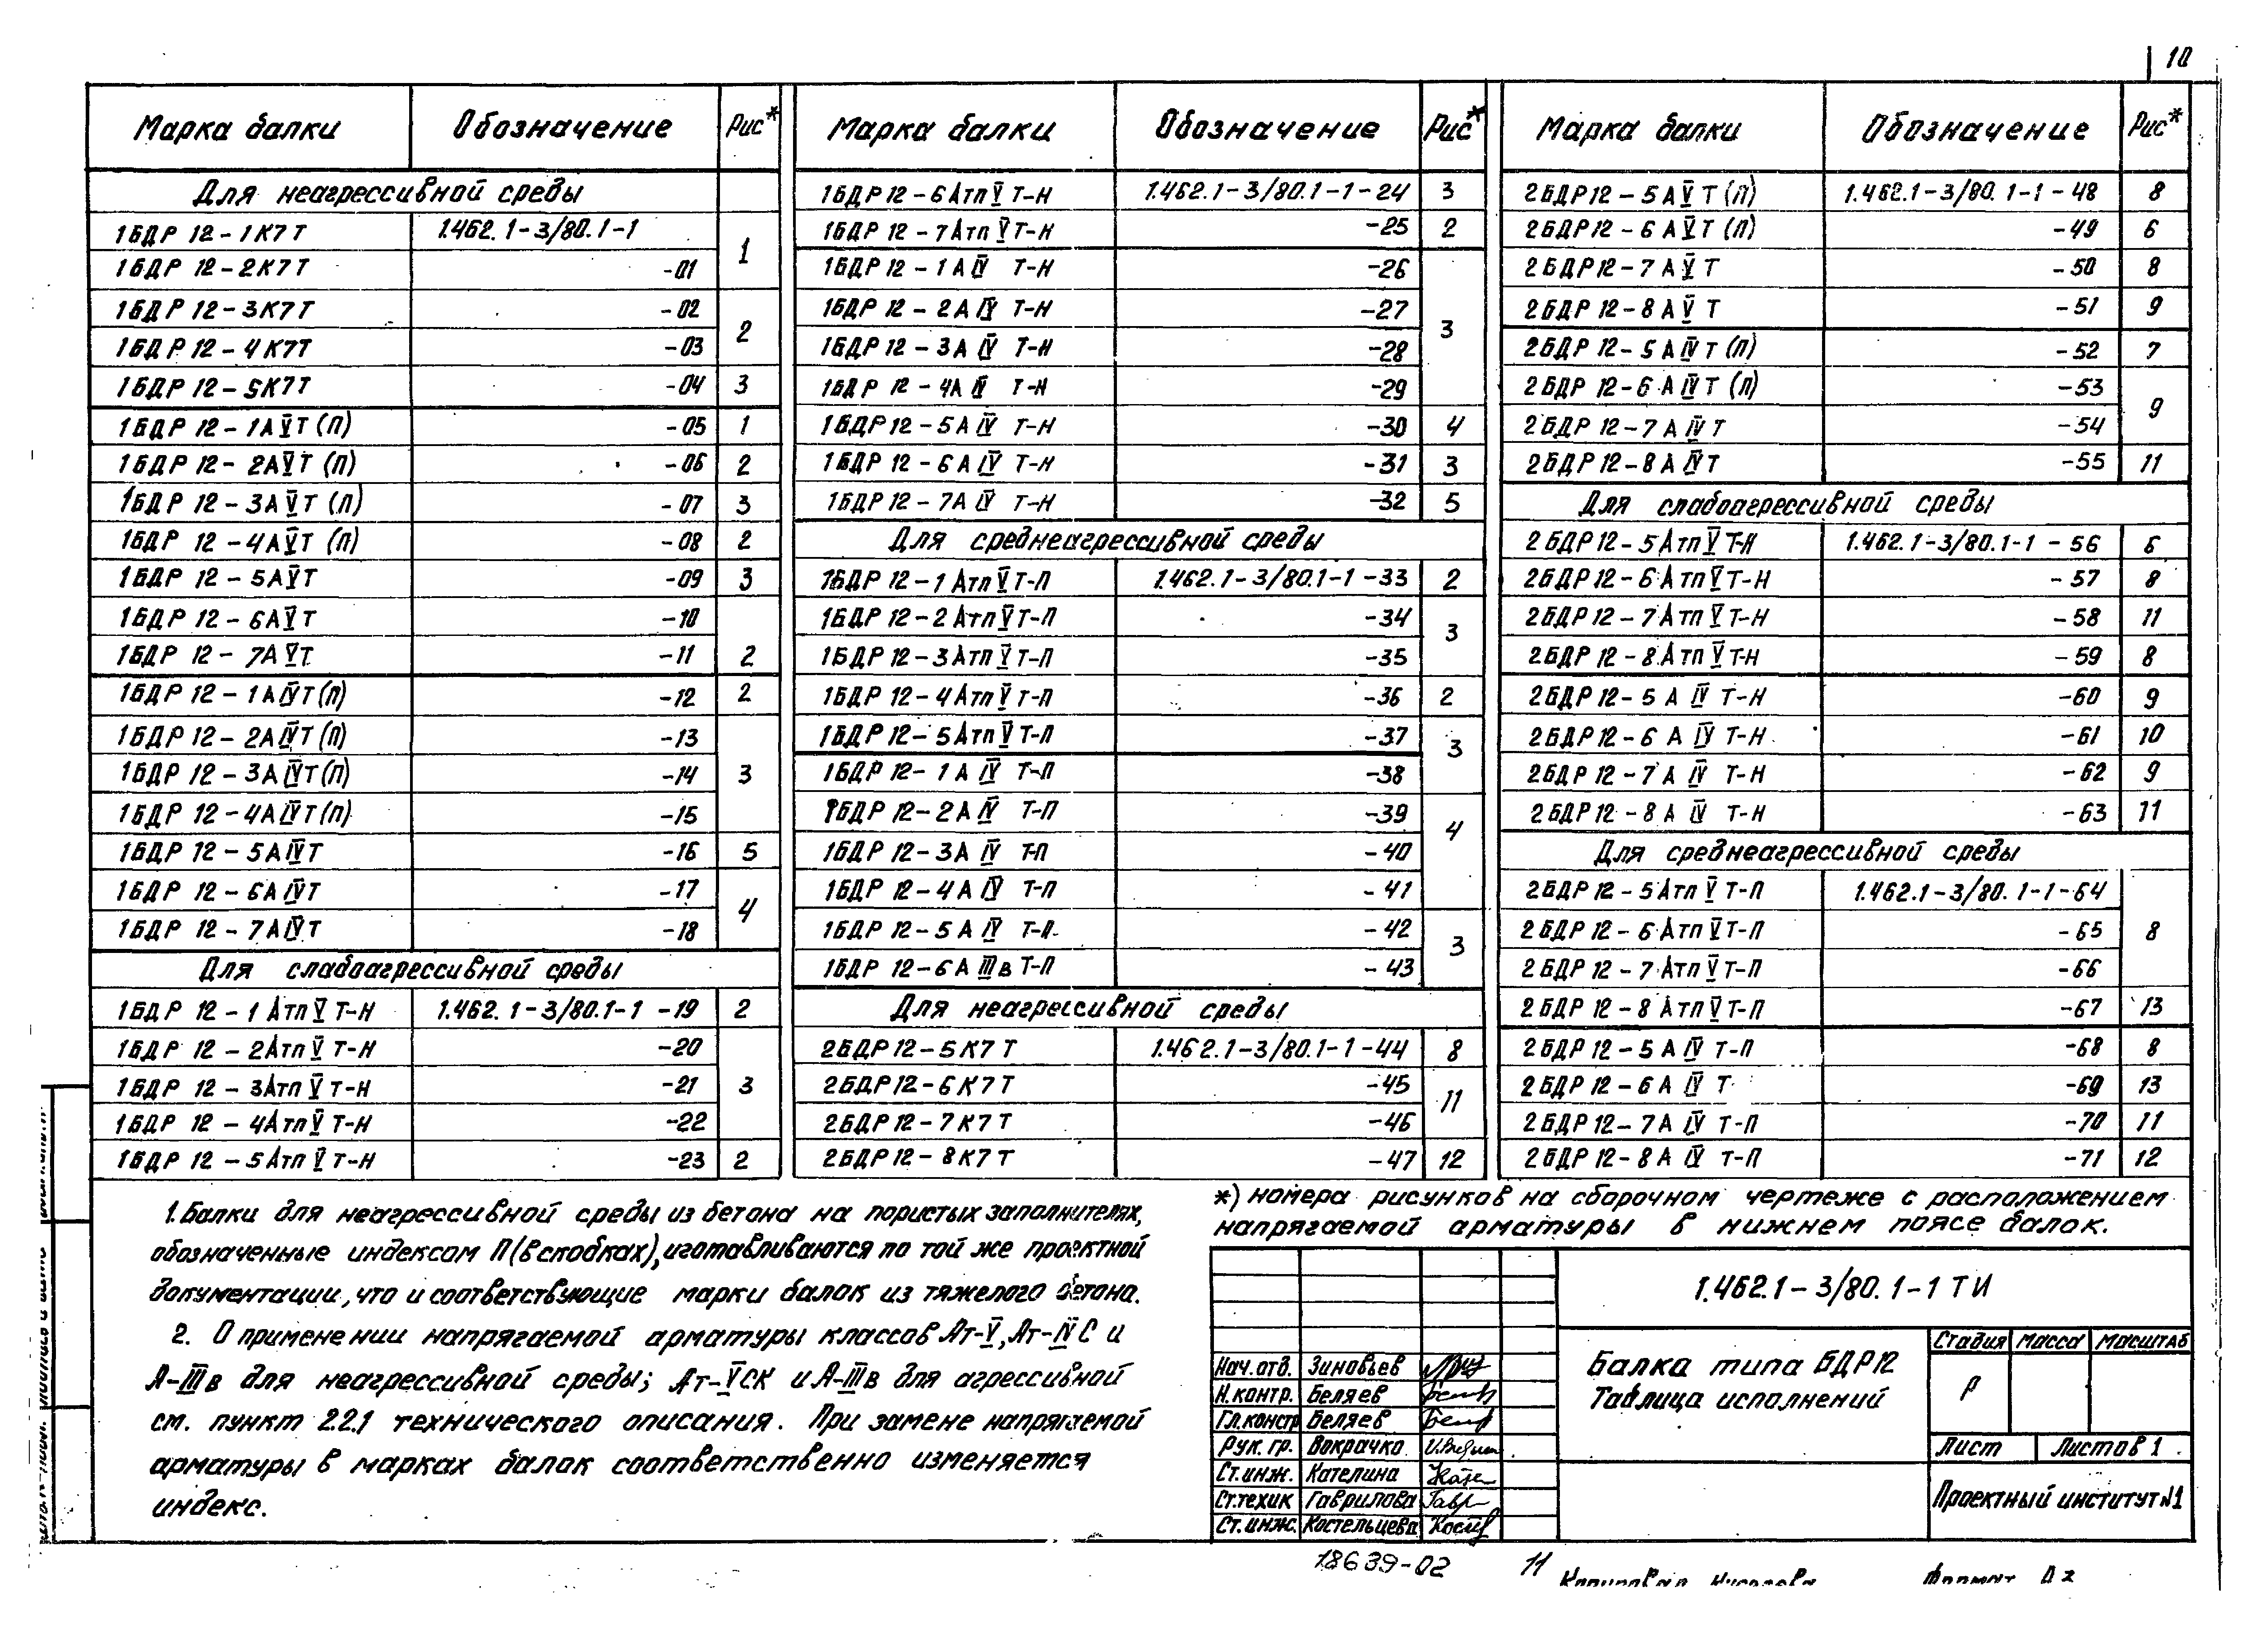 10
Марка балки Обозначение Рис*
Для неагрессивной среды
1БДР 12-1К7Т 1.462.1-3/80.1-1 1
1БДР 12-2К7Т -01
1БДР 12-3К7Т -02 2
1БДР 12-4К7Т -03
1БДР 12-5К7Т -04 3
1БДР 12-1АVТ(П) -05 1
1БДР 12-2АVТ(П) -06 2
1БДР 12-3АVТ(П) -07 3
1БДР 12-4АVТ(П) -08 2
1БДР 12-5АVТ -09 3
1БДР 12-6АVТ -10
1БДР 12-7АVТ -11 2
1БДР 12-1АIVТ(П) -12 2
1БДР 12-2АIVТ(П) -13
1БДР 12-3АIVТ(П) -14 3
1БДР 12-4АIVТ(П) -15
1БДР 12-5АIVТ -16 5
1БДР 12-6АIVТ -17 4
1БДР 12-7АIVТ -18
Для слабоагрессивной среды
1БДР 12-1АтпVТ-Н 1.462.1-3/80.1-1 -19 2
1БДР 12-2АтпVТ-Н -20
1БДР 12-3АтпVТ-Н -21 3
1БДР 12-4АтпVТ-Н -22
1БДР 12-5АтпVТ-Н -23 2
Марка балки Обозначение Рис*
1БДР 12-6АтпVТ-Н 1.462.1-3/80.1-1-24 3
1БДР 12-7АтпVТ-Н -25 2
1БДР 12-1АIV Т-Н -26
1БДР 12-2АIV Т-Н -27 3
1БДР 12-3АIV Т-Н -28
1БДР 12-4А Т-Н -29
1БДР 12-5АIV Т-Н -30 4
1БДР 12-6АIV Т-Н -31 3
1БДР 12-7АIV Т-Н -32 5
Для среднеагрессивной среды
1БДР 12-1АтпVТ-П 1.462.1-3/80.1-1-33 2
1БДР 12-2АтпVТ-П -34 3
1БДР 12-3АтпVТ-П -35
1БДР 12-4АтпVТ-П -36 2
1БДР 12-5АтпVТ-П -37 3
1БДР 12-1АIV Т-П -38
1БДР 12-2АIV Т-П -39 4
1БДР 12-3АIV Т-П -40
1БДР 12-4АIV Т-П -41
1БДР 12-5АIV Т-П -42 3
1БДР 12-6АIIIвТ-П -43
Для неагрессивной среды
2БДР12-5К7Т 1.462.1-3/80.1-1-44 8
2БДР12-6К7Т -45 11
2БДР12-7К7Т -46
2БДР12-8К7Т -47 12
Марка балки Обозначение Рис*
2БДР12-5АVТ(П) 1.462.1-3/80.1-1-48 8
2БДР12-6АVТ(П) -49 6
2БДР12-7АVТ -50 8
2БДР12-8АVТ -51 9
2БДР12-5АIVТ(П) -52 7
2БДР12-6АIVТ(П) -53 9
2БДР12-7АIVТ -54
2БДР12-8АIVТ -55 11
Для слабоагрессивной среды
2БДР12-5АтпVТ-Н 1.462.1-3/80.1-1-56 6
2БДР12-6АтпVТ-Н -57 8
2БДР12-7АтпVТ-Н -58 11
2БДР12-8АтпVТ-Н -59 8
2БДР12-5АIV Т-Н -60 9
2БДР12-6АIV Т-Н -61 10
2БДР12-7АIV Т-Н -62 9
2БДР12-8АIV Т-Н -63 11
Для среднеагрессивной среды
2БДР12-5АтпVТ-П 1.462.1-3/80.1-1-64
2БДР12-6АтпVТ-П -65 8
2БДР12-7АтпVТ-П -66
2БДР12-8АтпVТ-П -67 13
2БДР12-5АIV Т-П -68 8
2БДР12-6АIV Т -69 13
2БДР12-7АIV Т-П -70 11
2БДР12-8АIV Т-П -71 12
1. Балки для неагрессивной среды из бетона на пористых заполнителях,
обозначенные индексом П(в скобках), изготавливаются по той же проектной
документации, что и соответствующие марки балок из тяжелого бетона.
2. О применении напрягаемой арматуры классов Ат-V, Ат-IVС и
А-IIIв для неагрессивной среды; Ат-VСК и А-IIIв для агрессивной
см. пункт 2.2.1 технического описания. При замене напрягаемой
арматуры в марках балок соответственно изменяется
индекс.
*) номера рисунков на сборочном чертеже с расположением
напрягаемой арматуры в нижнем поясе балок.
1.462.1-3/80.1-1 ТИ
Нач.отд. Зиновьев
Н.контр. Беляев
Гл.констр Беляев
Рук.гр. Вокрачко
Ст.инж. Кателина
Ст.техик Гаврилова
Ст.инж. Костельцева
Балка типа БДР12
Таблица исполнений
Стадия Масса Масштаб
Р
Лист Листов 1
Проектный институт№1
18639-02 11
Копировал
Формат